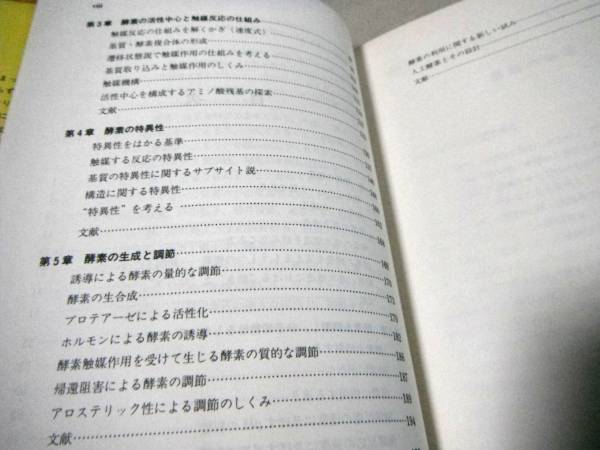 第3章 酵素の活性中心と触媒反応の仕組み
触媒反応の仕組みを解くかぎ(速度式)
基質・酵素複合体の形成
遷移状態説で触媒作用の仕組みを考える
基質取り込みと触媒作用のしくみ
触媒機構
活性中心を構成するアミノ酸残基の探索
文献
第4章 酵素の特異性
特異性をはかる基準
触媒する反応の特異性
基質の特異性に関するサブサイト説
構造に関する特異性
"特異性"を考える
文献 164
第5章 酵素の生成と調節 169
誘導による酵素の量的な調節 170
酵素の生合成 173
プロテアーゼによる活性化 179
ホルモンによる酵素の誘導 182
酵素触媒作用を受けて生じる酵素の質的な調節 186
帰還阻害による酵素の調節 187
アロステリック性による調節のしくみ 189
文献 194
酵素の利用に関する新しい試み
人工酵素とその設計
文献